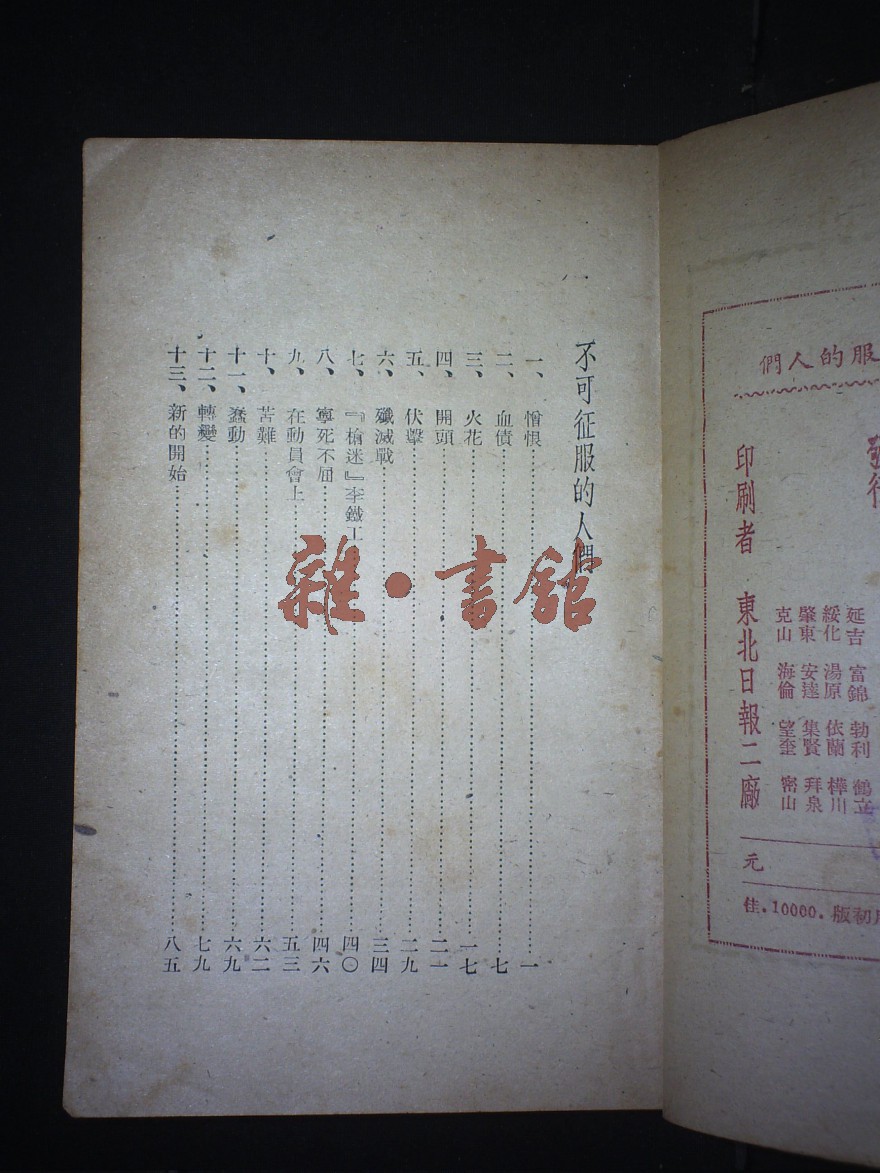 不可征服的人們
一、憎恨……一
二、血債……七
三、火花……一七
四、開頭……二一
五、伏擊……二九
六、殲滅戰……三四
七、『槍迷』李鐵工……四〇
八、寧死不屈……四六
九、在動員會上……五三
十、苦難……六二
十一、蠢動……六九
十二、轉變……七九
十三、新的開始……八五
雜·書舘
服的人們
延吉 富錦 勃利 鶴立
綏化 湯原 依蘭 樺川
肇東 安達 集賢 拜泉
克山 海倫 望奎 密山
印刷者 東北日報二廠
元
佳.10000.版初月